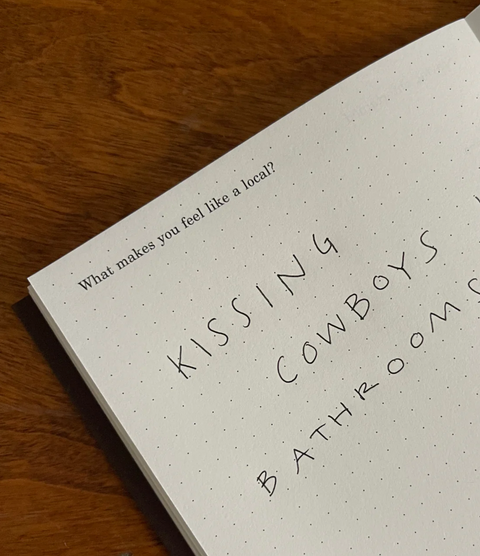 What makes you feel like a local?
KISSING
COWBOYS
BATHROOMS